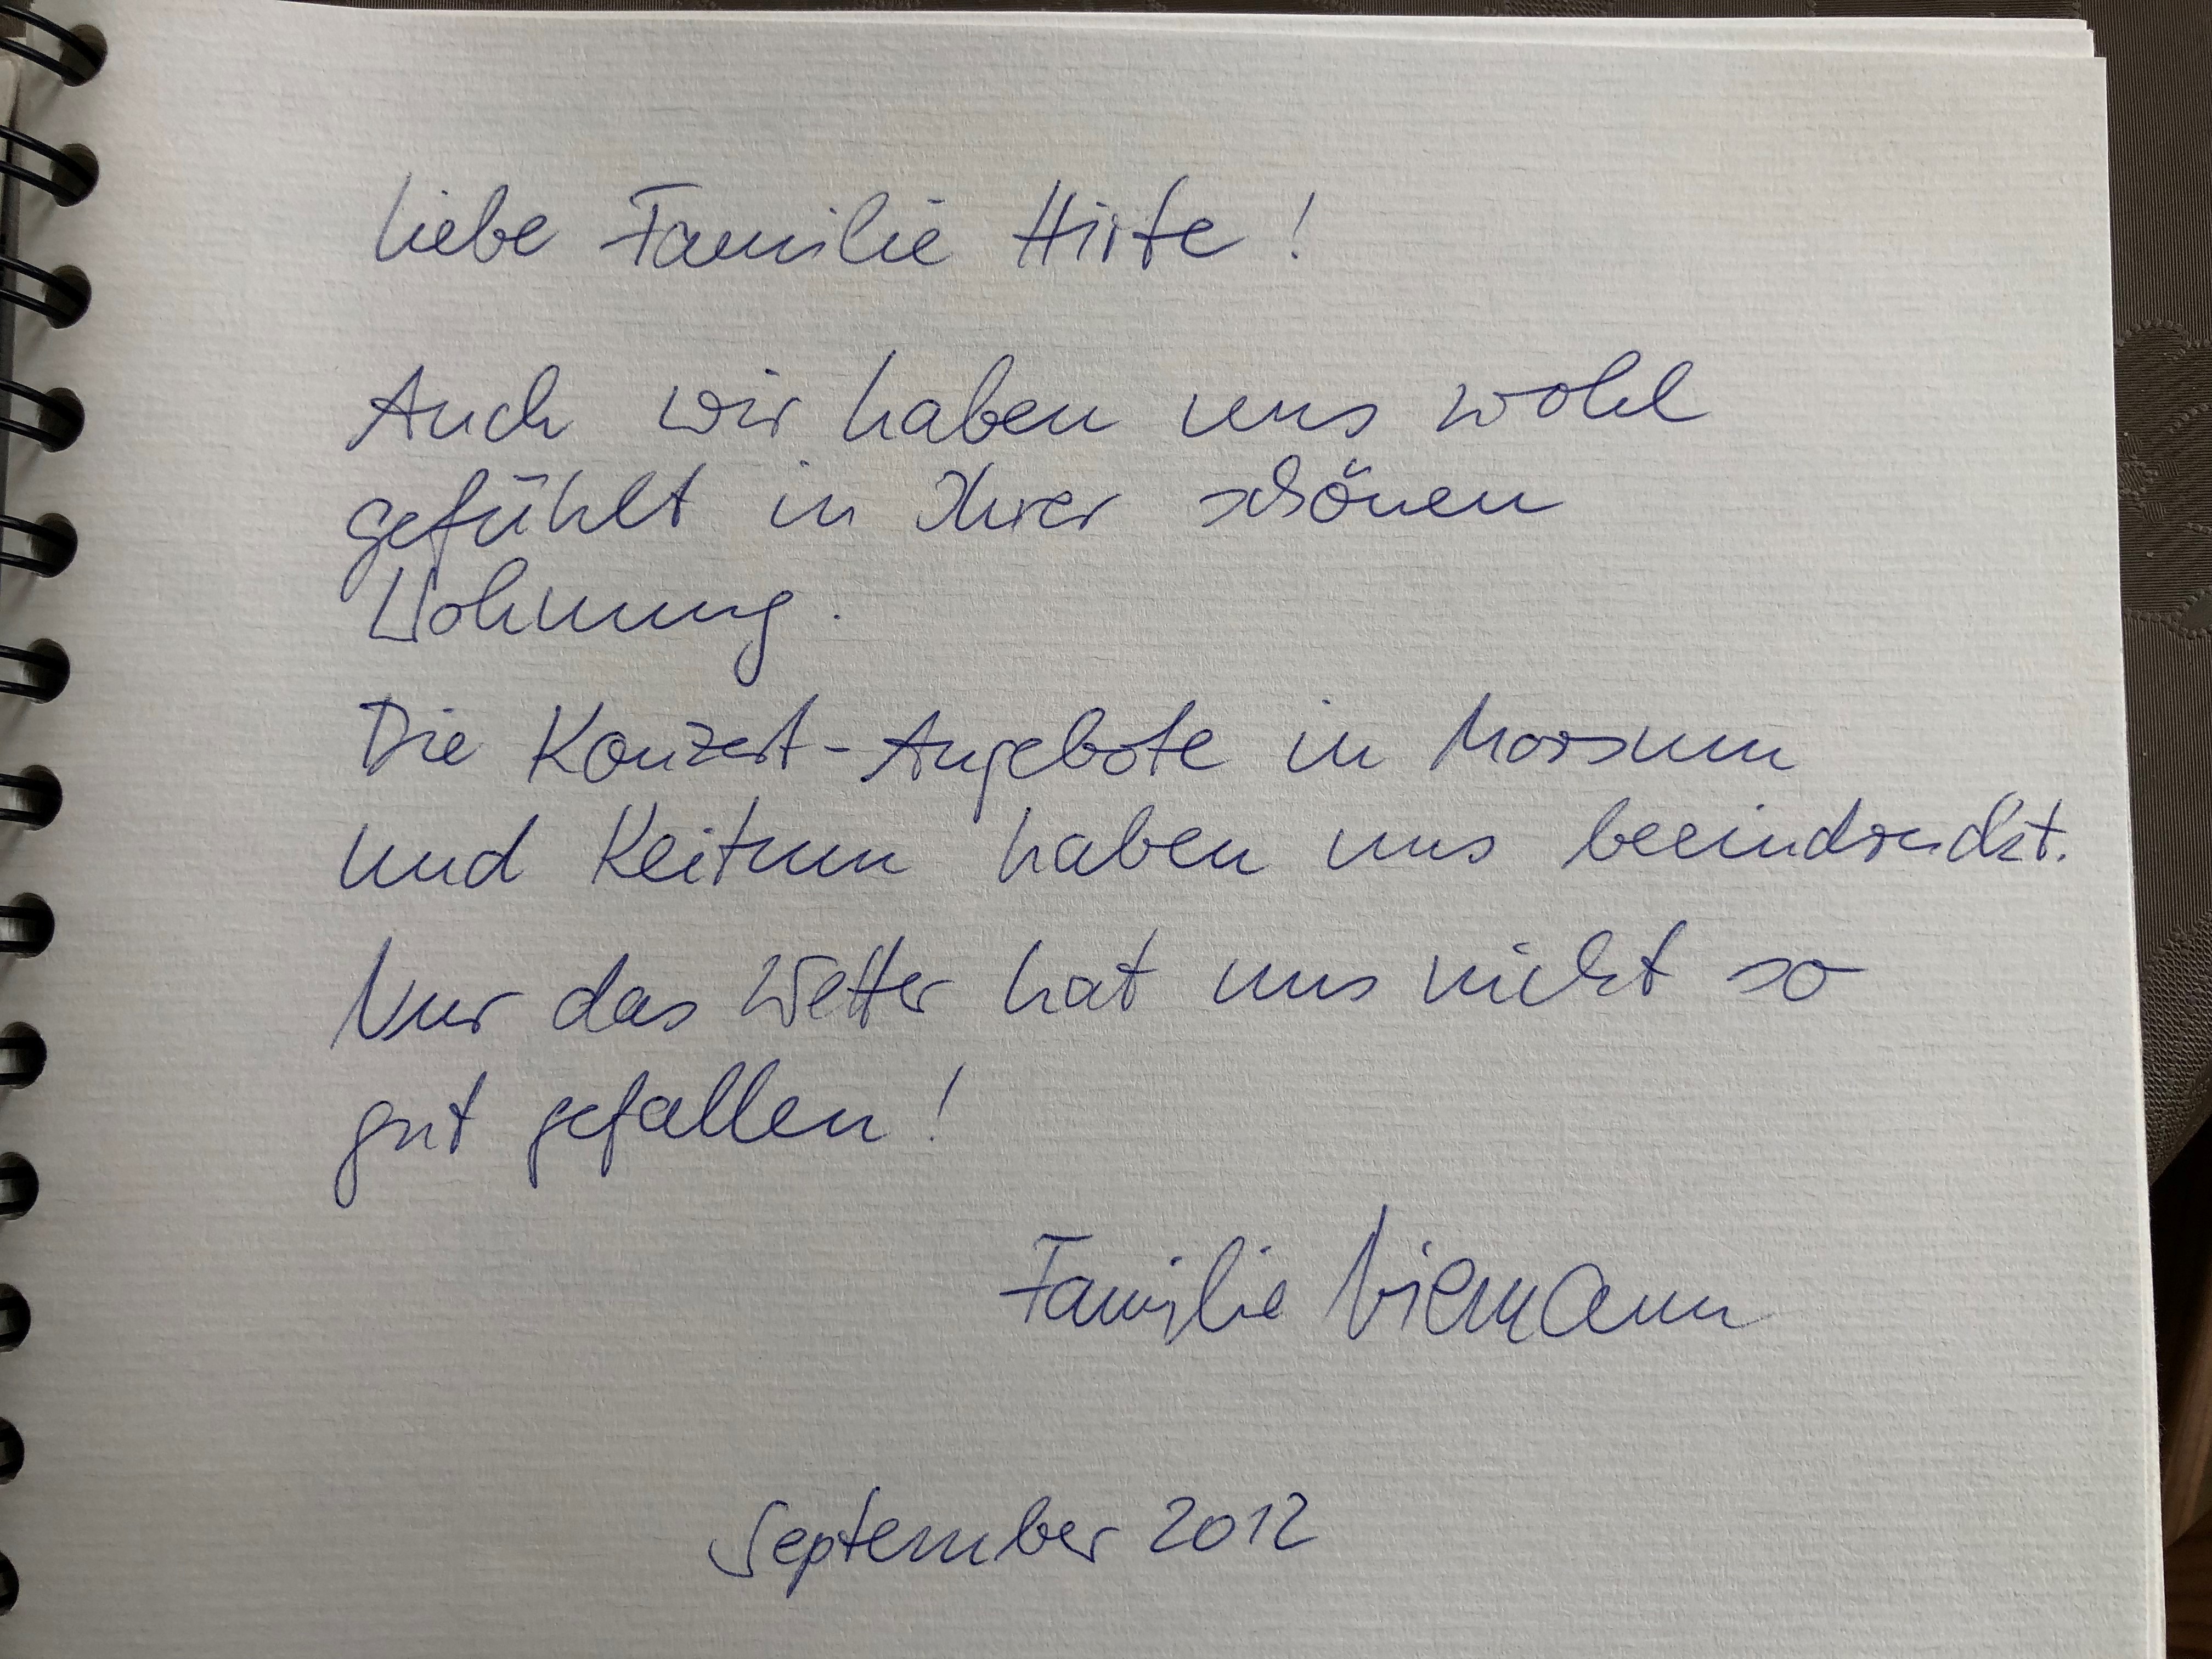 Liebe Familie Hirte !
Auch wir haben uns wohl
gefühlt in Ihrer schönen
Wohnung.
Die Konzert-Angebote in Morsum
und Keitum haben uns beeindruckt.
Nur das Wetter hat uns nicht so
gut gefallen !
Familie Niemann
September 2012